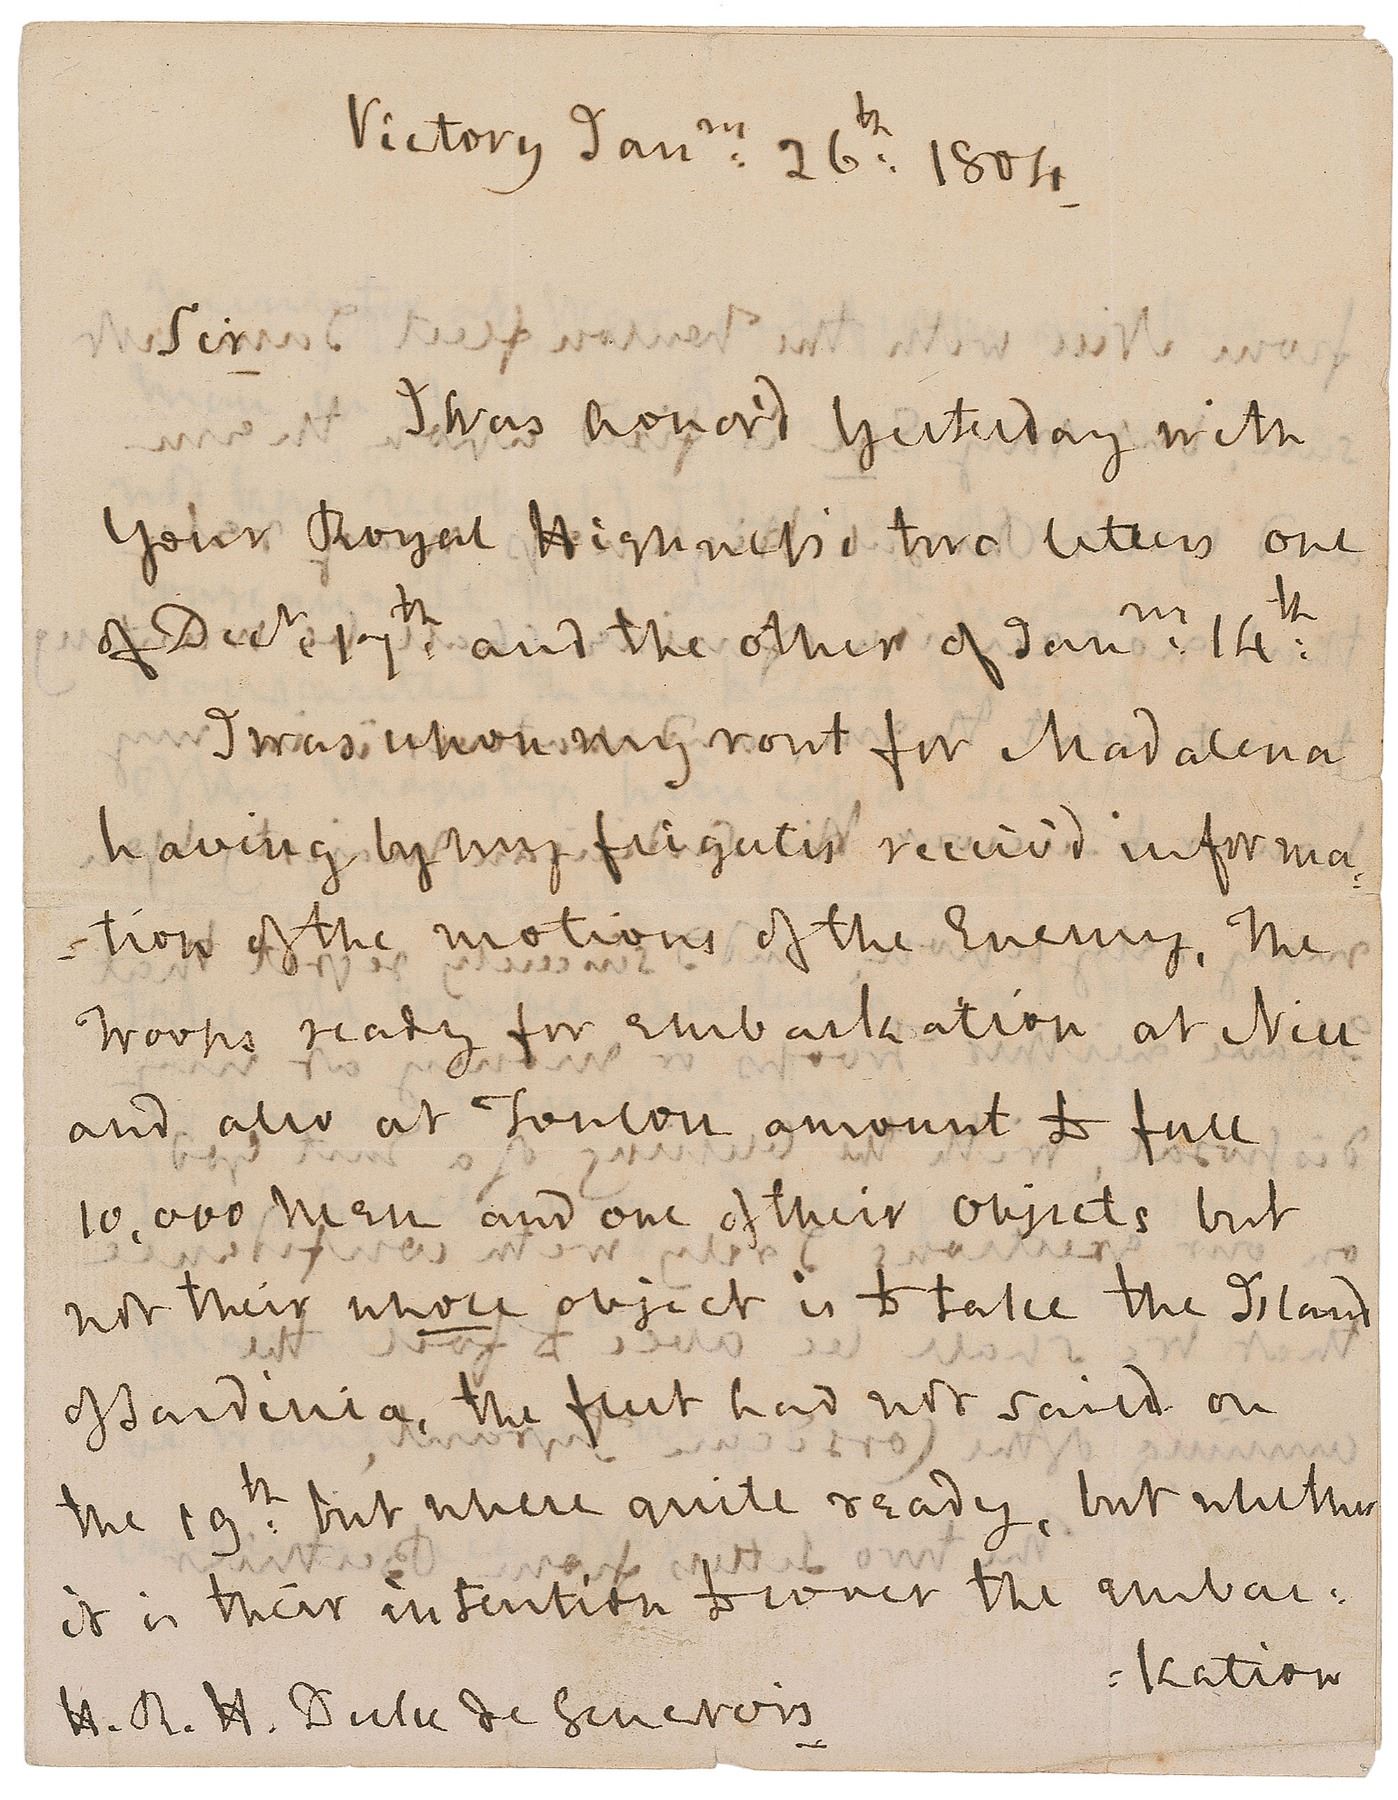 Victory Jany: 26th: 1804
Sir
I was honor'd Yesterday with
Your Royal Highness's two letters one
of Decr: 17th: and the other of Jany: 14th:
I was upon my rout for Madalena
having by my frigates receiv'd informa:
-tion of the motions of the Enemy, The
Troops ready for embarkation at Nice
and also at Toulon amount to full
10,000 Men and one of their objects but
not their whole object is to take the Island
of Sardinia, the fleet had not sailed on
the 19th: but where quite ready, but whether
it is their intention to cover the embar:
:kation
H. R. H. Duke de Genevois